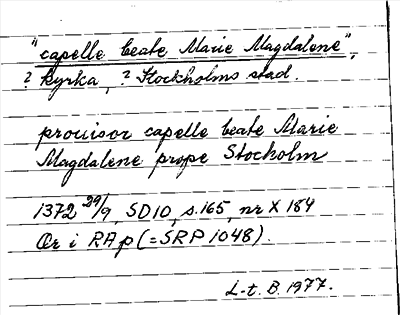 "capelle beate Marie Magdalene",
? kyrka, ? Stockholms stad.
prouisor capelle beate Marie
Magdalene prope Stocholm
1372 29/9, SD10, s.165, nr X 184
Or i RAp (=SRP 1048).
L.t. B. 1977.